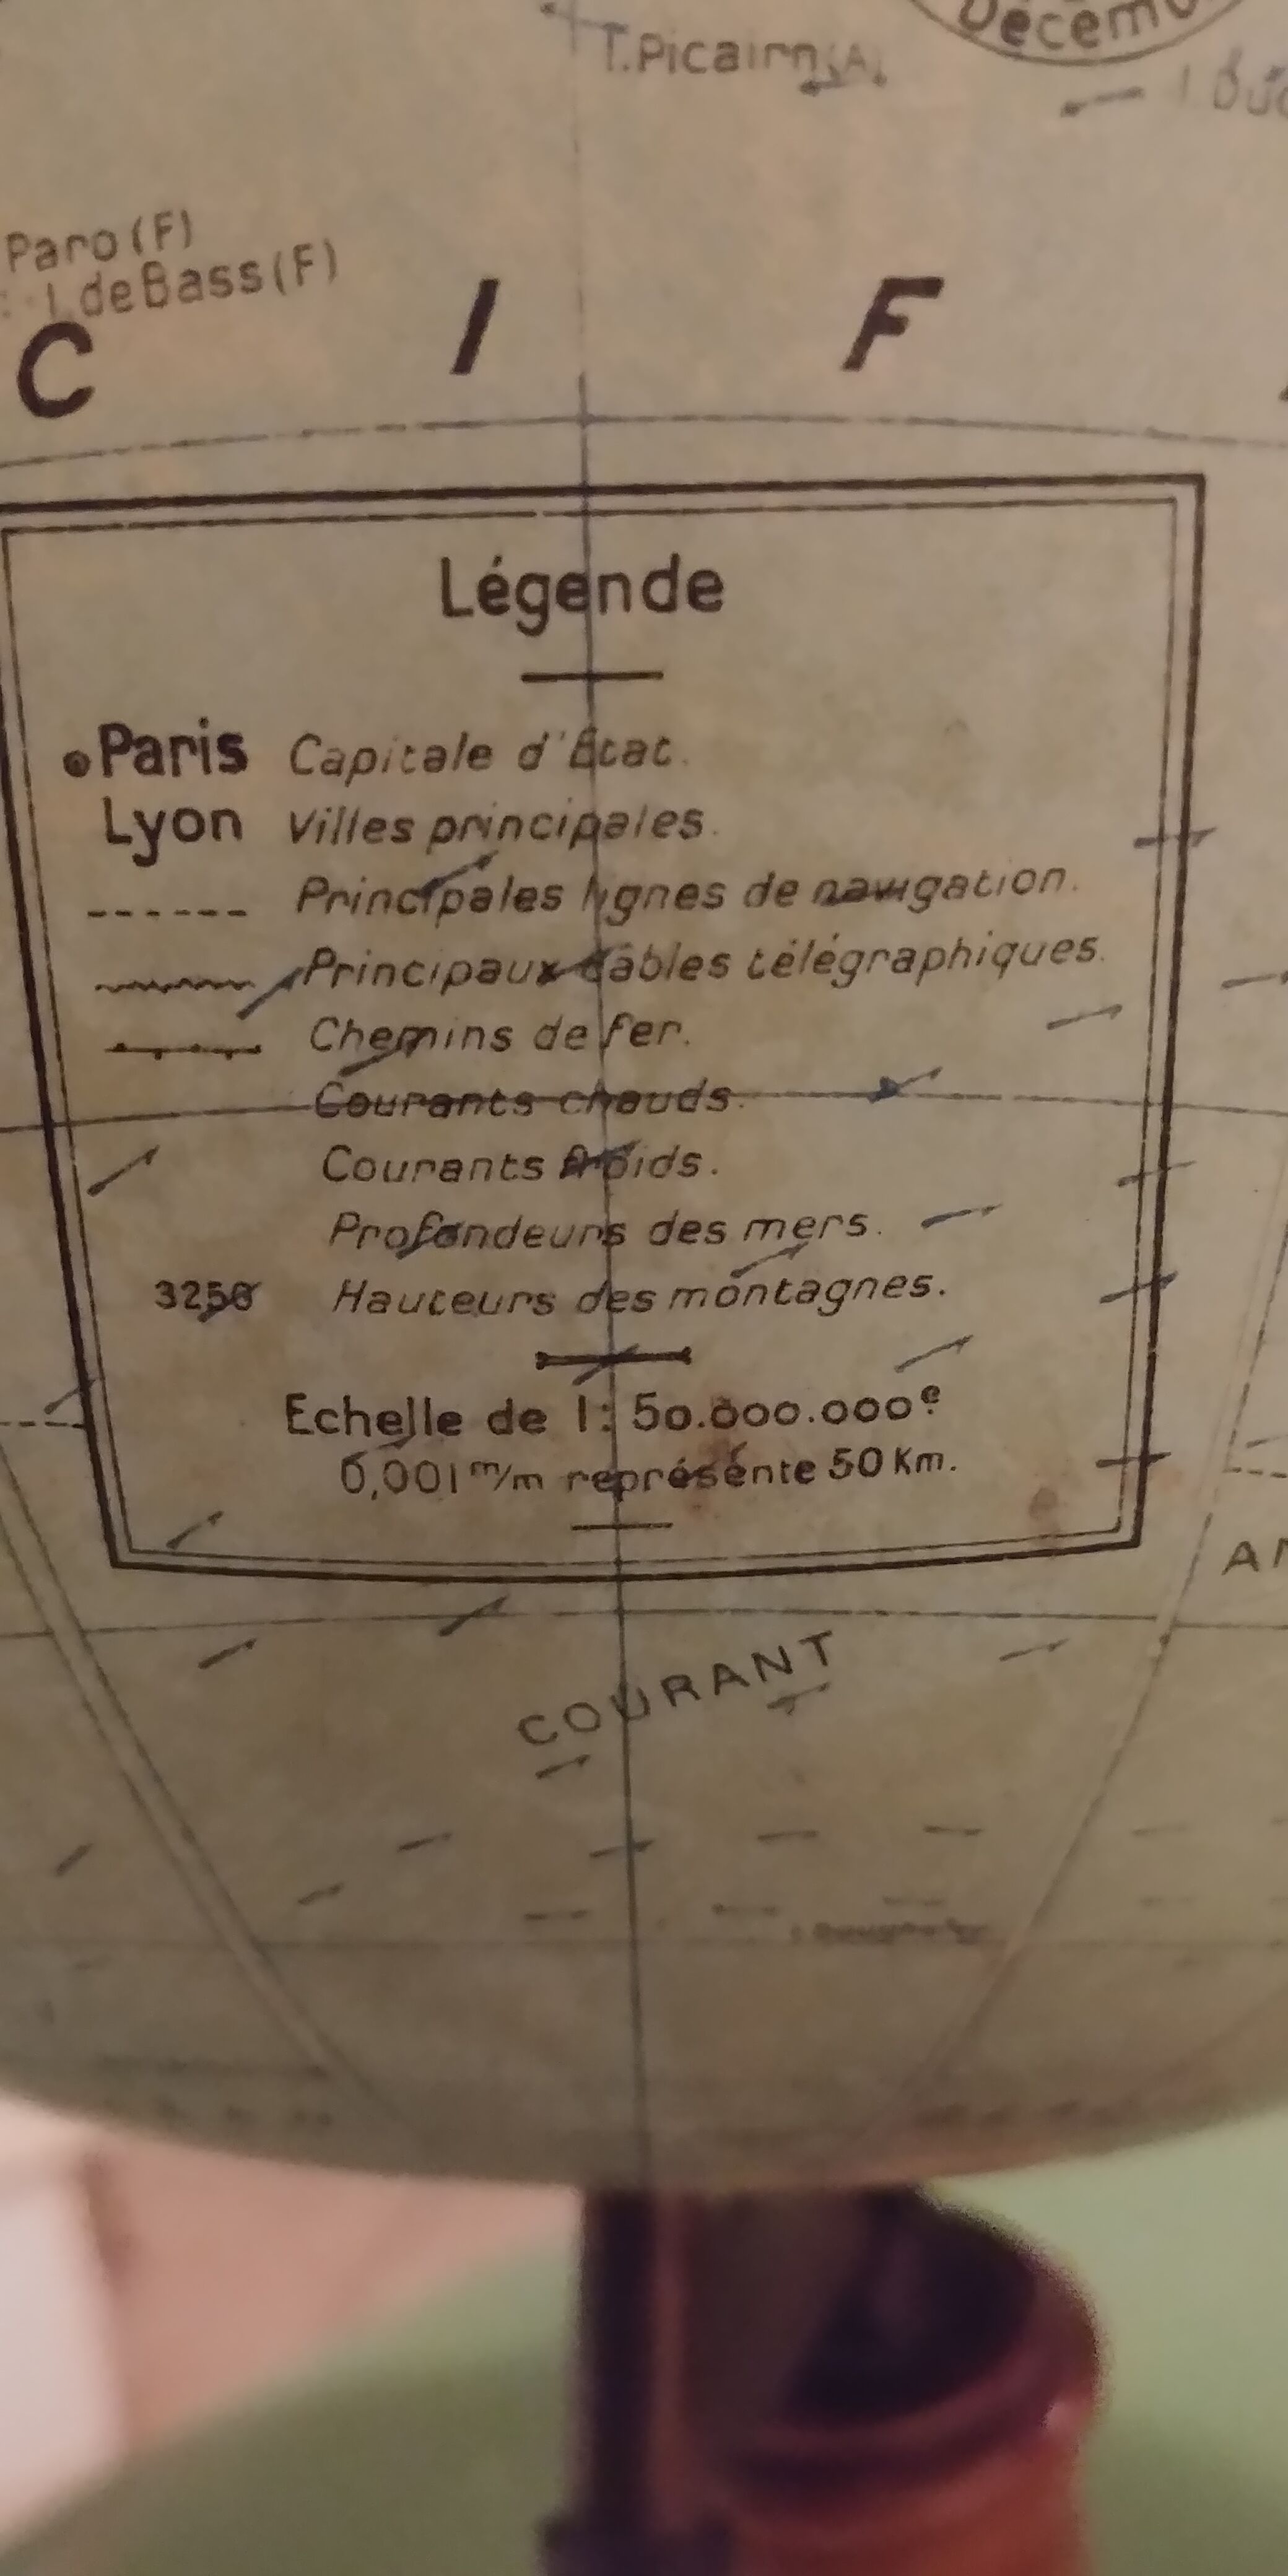 Décem
T.Picairn(A)
Paro(F)
I.deBass(F)
C I F
Légende
Paris Capitale d'État.
Lyon Villes principales.
Principales lignes de navigation.
Principaux câbles télégraphiques.
Chemins de fer.
Courants chauds.
Courants froids.
Profondeurs des mers.
3250 Hauteurs des montagnes.
Echelle de 1: 50.000.000e
0,001 m/m représente 50 Km.
AN
COURANT